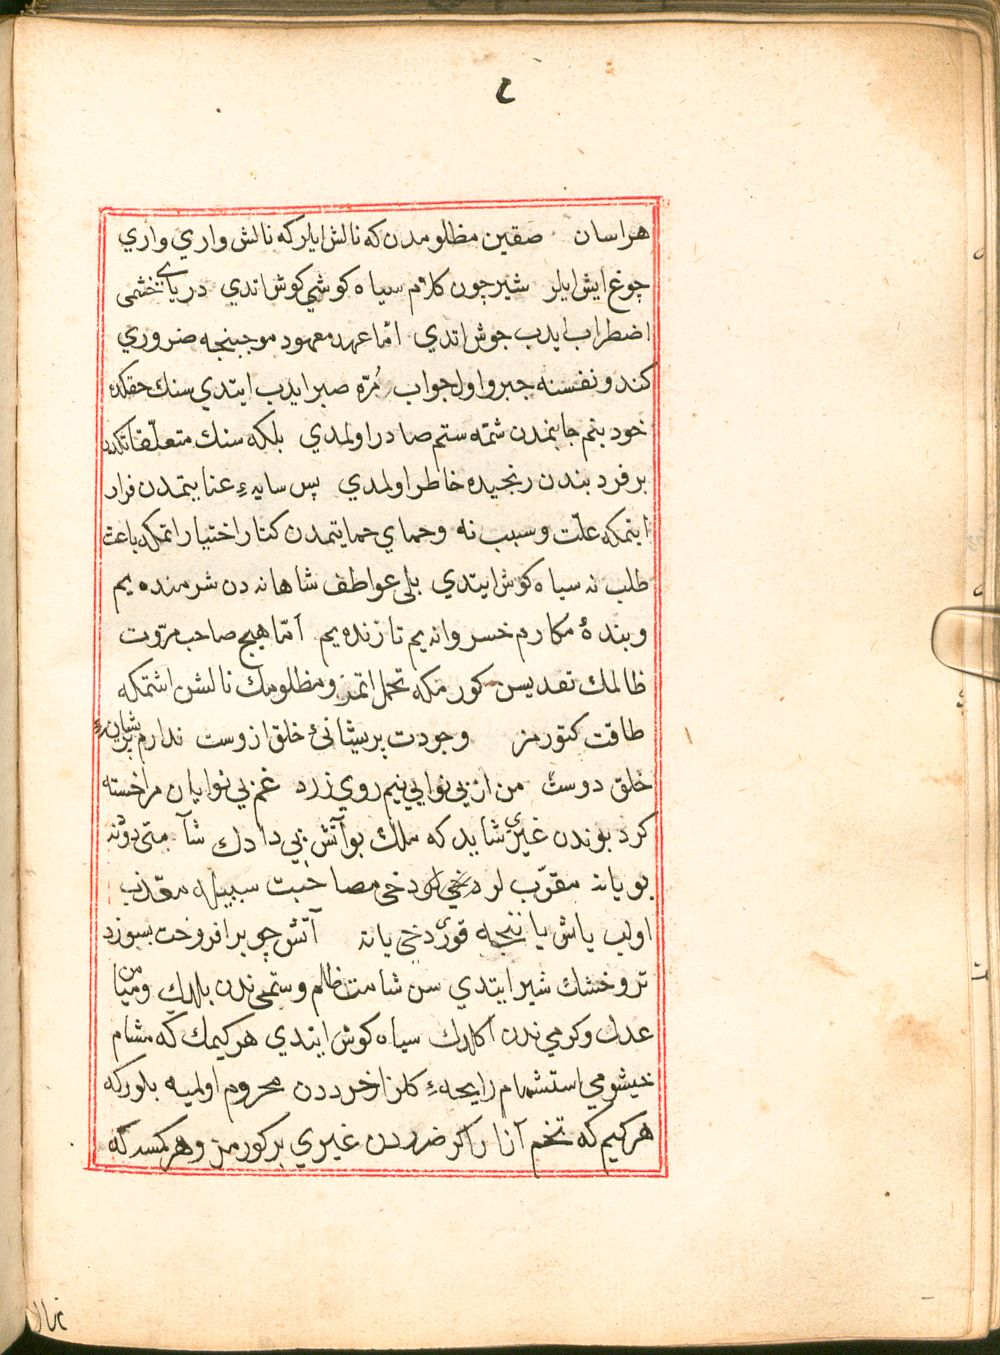 هراسان صقين مظلومدن كه نالش ايلر كه نالش واري واري
چوغ ايش ايلر شير چون كلام سياه كوشي كوش اتدي درياي خشمى
اضطراب ايدب جوش اتدي امّا عهد معهود موجبنجه ضروري
كندو نفسنه جبر واول جواب مُرّه صبر ايدب ايتدي سنك حقكده
خود بنم جانبمدن شمّه ستم صادر اولمدي بلكه سنك متعلّقاتكدن
بر فرد بندن رنجيده خاطر اولمدي پس سايهء عنايتمدن فرار
ايتمكه علّت وسبب نه وحماي حمايتمدن كنار اختيار اتمكه باعث
طلب نه سياه كوش ايتدي بلى عواطف شاهانه دن شرمنده يم
وبندۀ مكارم خسروانه يم تا زنده يم امّا هيچ صاحب مروّت
ظالمك تعديسن كورمكه تحمل اتمز ومظلومك نالشن اشتمكه
طاقت كتورمز وجودت پريشانئ خلق ازوست ندارم پريشانئ
خلق دوست من از بي نوايي نيم روي زرد غم بي نوايان مرا خسته
كرد بوندن غيري شايد كه ملك بو آتش بي دادك شآمتى دوتنه
بويانه مقرّب لر دخي مصاحبت سبيله معذب
اولب ياش يا ننجه قوري دخى يانه آتش چو بر افروخت بسوزد
تر وخشك شير ايتدي سن شامت ظلم وستمى ندن بلدك وميامن
عدل وكرمي ندن اكلدك سياه كوش ايتدي هر كيمك كه مشام
خيشومي استشمام رايحهء كلزار خرددن محروم اولميه بلور كه
هر كيم كه تخم آزار اكر ضرردن غيري بر كورمز وهر كمسه كه